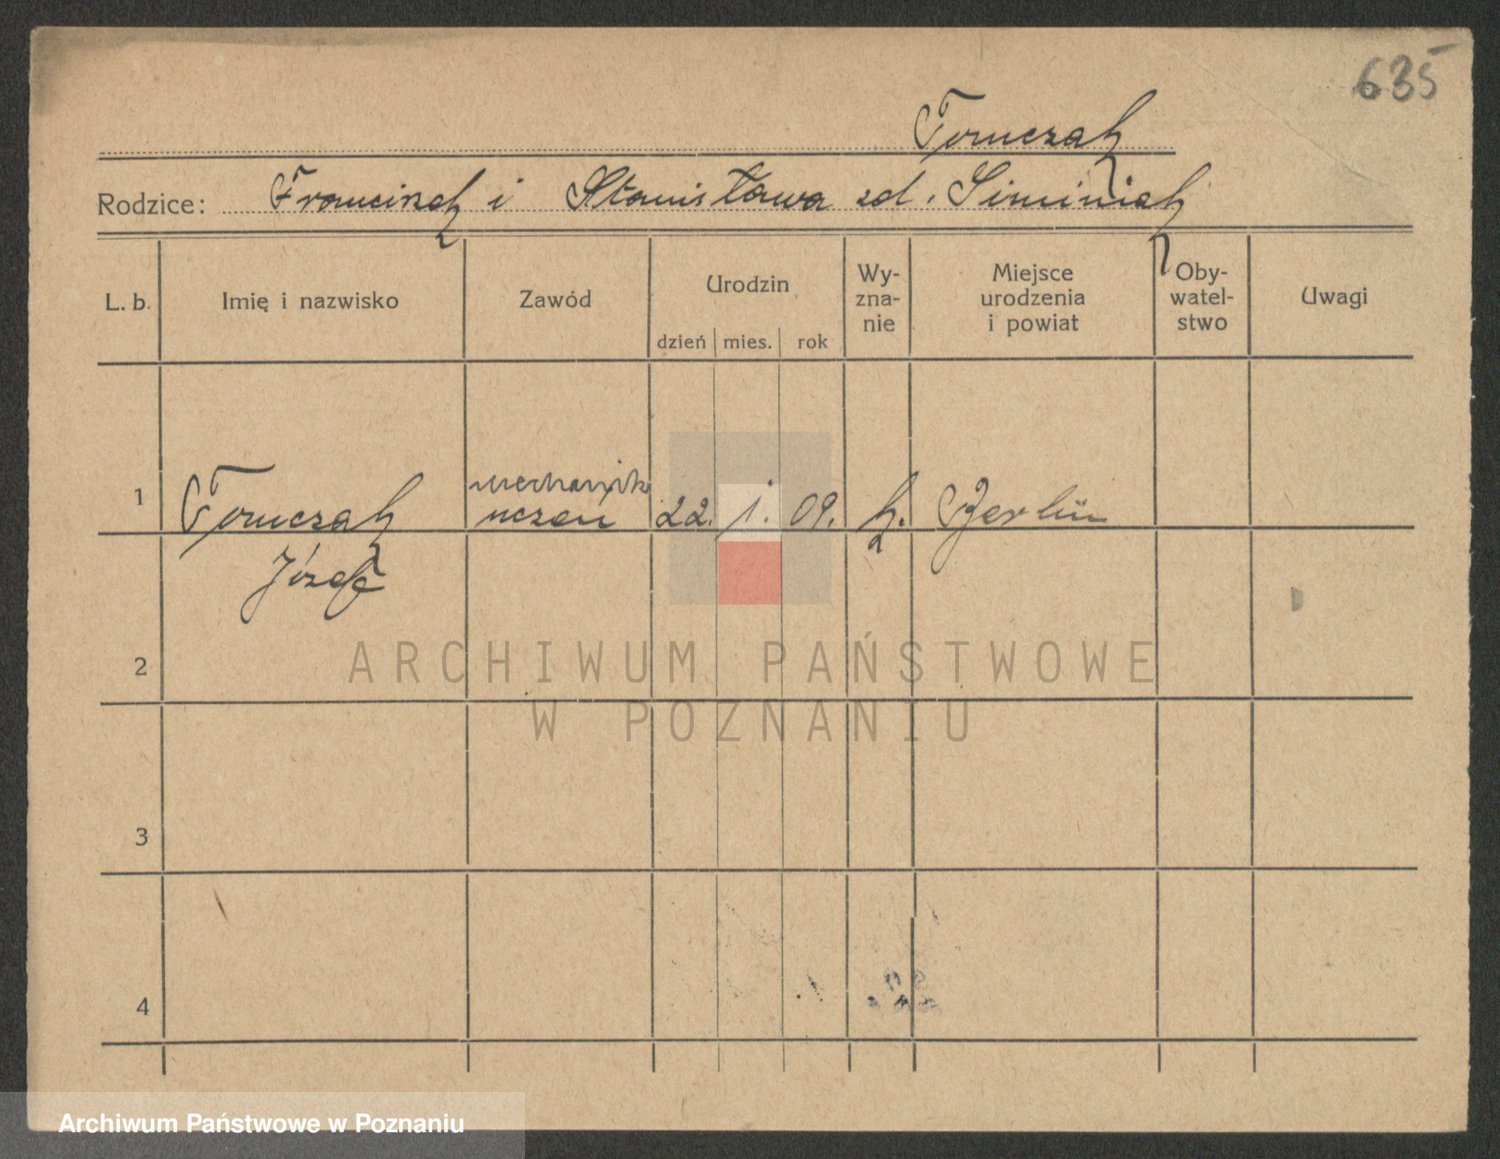 635
Tomczak
Rodzice: Franciszek i Stanisława zd. Siminiak
L. b. Imię i nazwisko Zawód Urodzin dzień mies. rok Wy-zna-nie Miejsce urodzenia i powiat Oby-watel-stwo Uwagi
mechanik
1 Tomczak uczeń 22. 1. 09. k. Berlin
Józef
2
ARCHIWUM PAŃSTWOWE
W POZNANIU
3
4
Archiwum Państwowe w Poznaniu